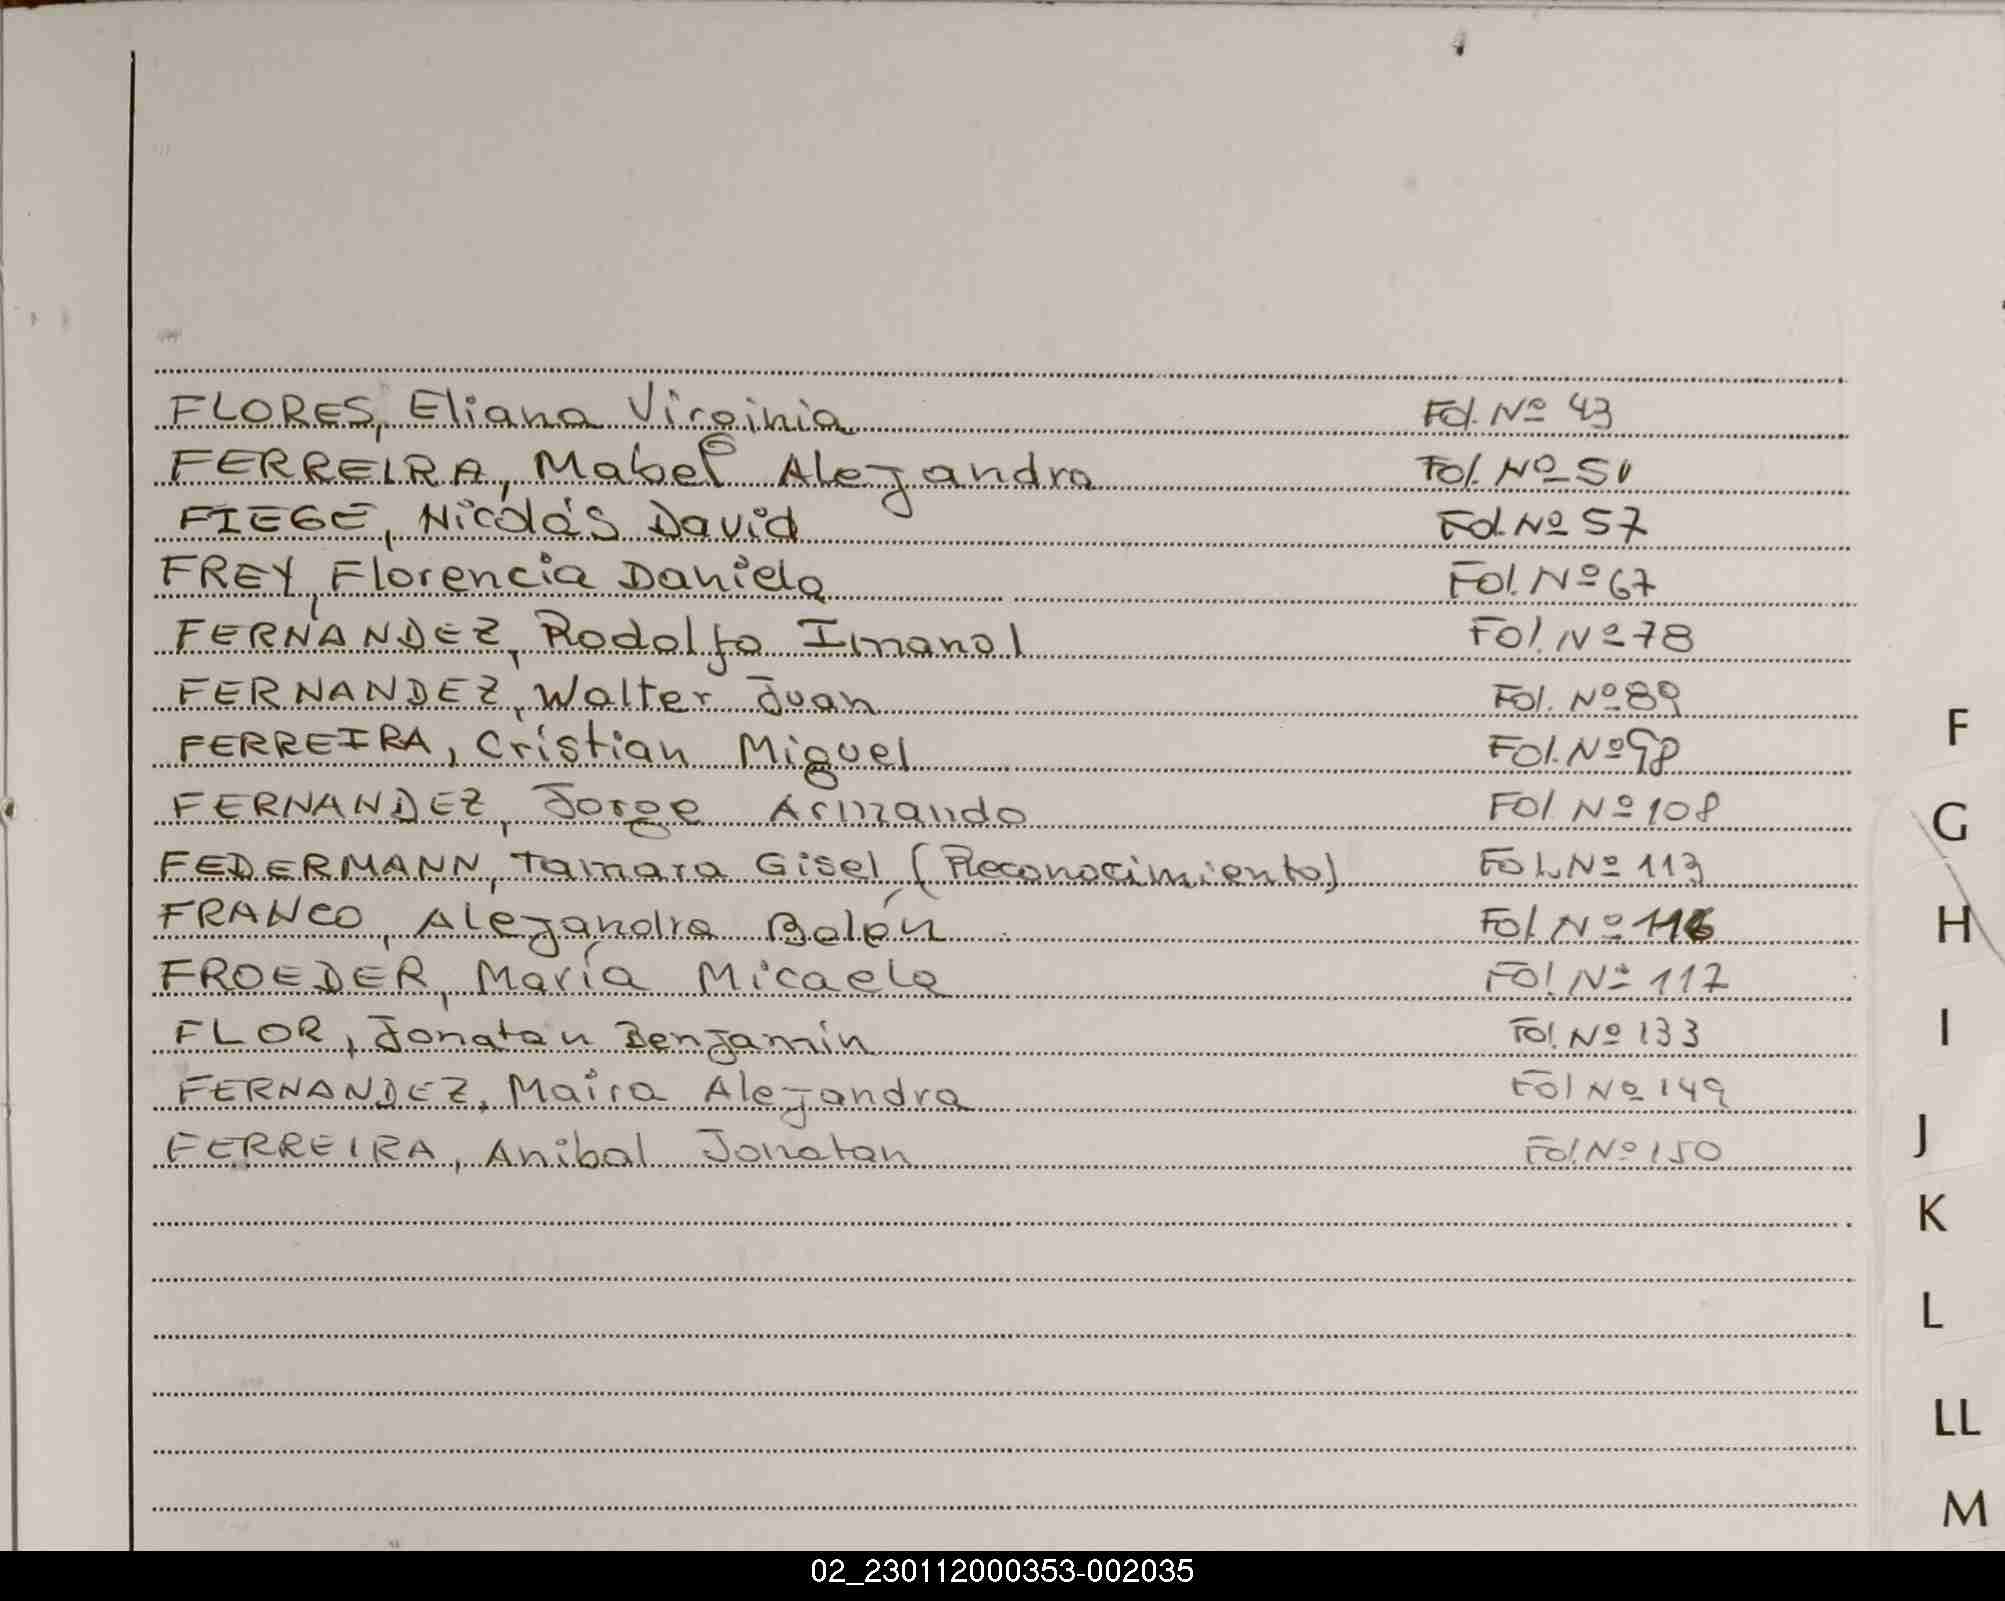 FLORES, Eliana Virginia Fol. Nº 43
FERREIRA, Mabel Alejandra Fol. Nº 50
FIEGE, Nicolás David Fol. Nº 57
FREY, Florencia Daniela Fol. Nº 67
FERNANDEZ, Rodolfo Imanol Fol. Nº 78
FERNANDEZ, Walter Juan Fol. Nº 89
FERREIRA, Cristian Miguel Fol. Nº 98
FERNANDEZ, Jorge Armando Fol. Nº 108
FEDERMANN, Tamara Gisel (Reconocimiento) Fol. Nº 113
FRANCO, Alejandra Belén Fol. Nº 116
FROEDER, María Micaela Fol. Nº 117
FLOR, Jonatan Benjamín Fol. Nº 133
FERNANDEZ, Maira Alejandra Fol Nº 149
FERREIRA, Anibal Jonatan Fol. Nº 150
F
G
H
I
J
K
L
LL
M
02_230112000353-002035